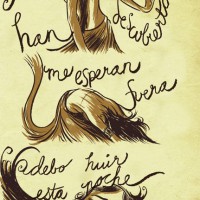 han descubierto
me esperan
fuera
debo huir
esta noche